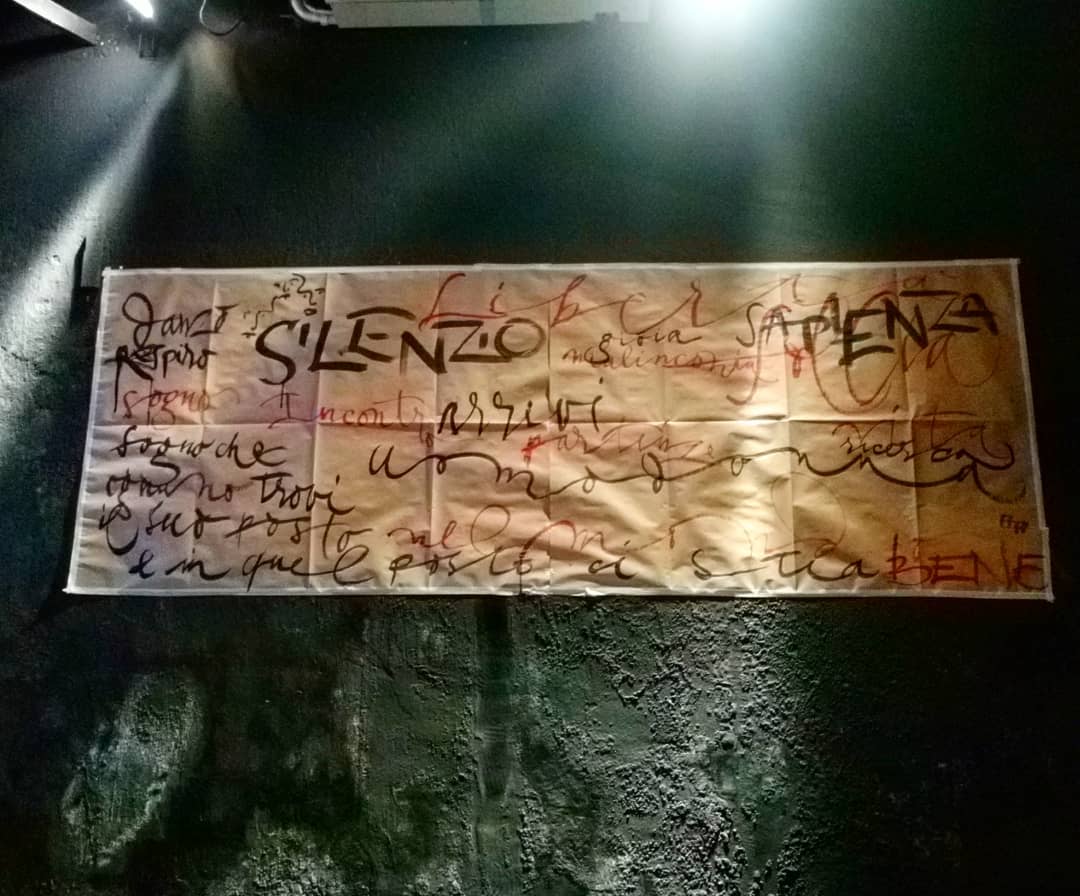 Libertà
Danzo SILENZIO gioia SAPIENZA
Respiro malinconia
sogno Incontri arrivi
partenze
Sogno che uomo donna
ognuno trovi
il suo posto nel
e in quel posto ci stia BENE